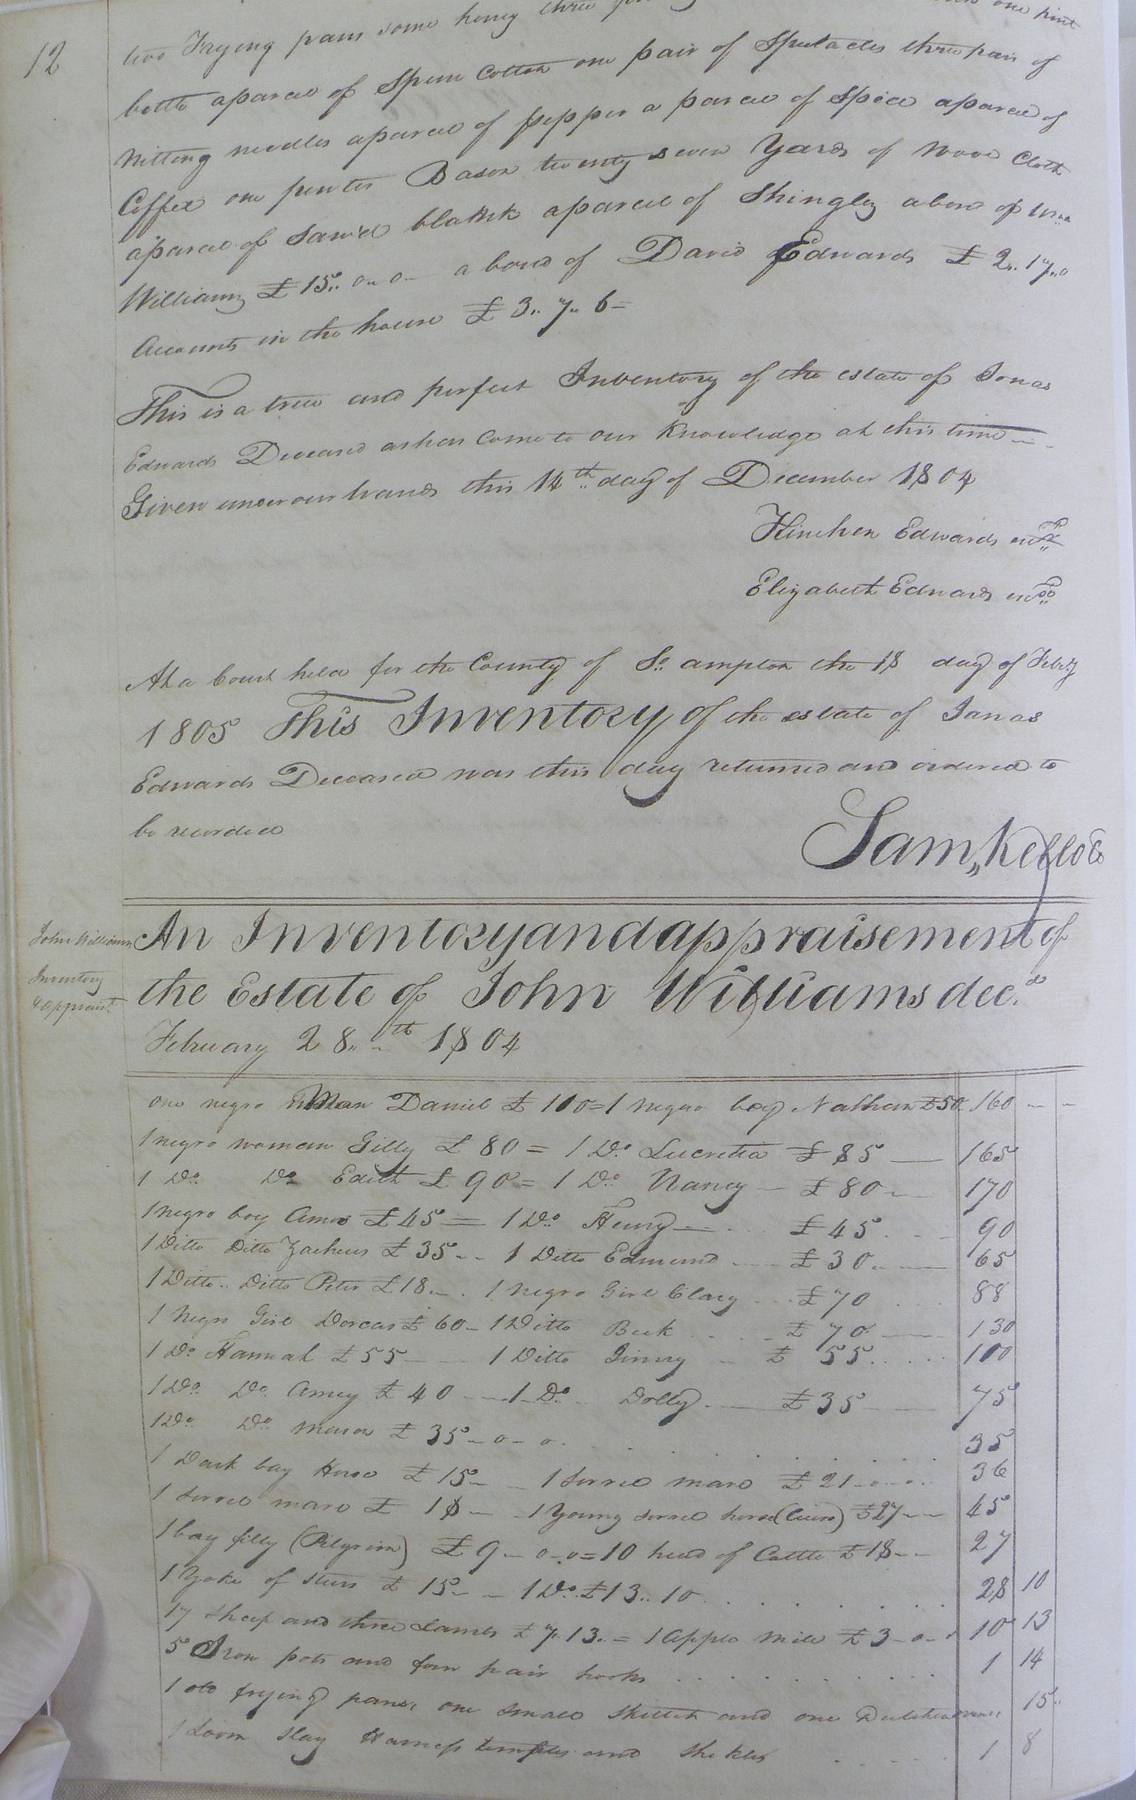 12
two Frying pans some honey three one pint
bottle a parcel of Spun Cotton one pair of Spectacles three pair of
Nitting needles a parcel of pepper a parcel of Spice a parcel of
Coffee one pewter Bason twenty seven Yards of wove Cloth
a parcel of Sawed blank a parcel of Shingles a bond of
Williams £15.. 0.. 0 a bond of David Edwards £2.. 17.. 0
Accounts in the house £3.. 7.. 6 =
This is a true and perfect Inventory of the estate of Jonas
Edwards Deceased as has come to our Knowledge at this time
Given under our hands this 14th day of December 1804
Hinchen Edwards
Elizabeth Edwards
At a Court held for the County of So ampton the 18 day of Feby
1805 This Inventory of the estate of Jonas
Edwards Deceased was this day returned and ordered to
be recorded
Sam,, Kello Cc
John Williams
Inventory
& appraist.
An Inventory and appraisement of
the Estate of John Williams decd.
February 28..th 1804
one negro Man Daniel £100 = 1 negro boy Nathan £50 160
1 negro woman Gilly £80 = 1 Do. Lucretia £85 165
1 Do. Do. Edith £90 = 1 Do Nancy £80 170
1 negro boy Amos £45 = 1 Do. Henry £45 90
1 Ditto Ditto Zacheus £35 1 Ditto Edmund £30 65
1 Ditto.. Ditto Peter £18 1 negro Girl Clary £70 88
1 Negro Girl Dorcas £60 1 Ditto Beck £70 130
1 Do Hannah £55 1 Ditto Jinny £55 100
1 Do. Do. Amey £40 1 Do. Dolly £35 75
1 Do. Do. Mason £35 - 0 - 0 35
1 Dark bay Horse £15 1 Sorrel mare £21 36
1 Sorrel mare £18 1 Young sorrel horse £27 45
1 bay filly (Pilgrim) £9 - 0 - 0 = 10 head of Cattle £18 27
1 Yoke of steers £15 1 Do. £13.. 10 28 10
17 sheep and three Lambs £7.. 13.. = 1 Apple Mill £3 - 0 - 0 10 13
5 Iron pots and four pair hooks 1 14
1 old frying pan, one small Skillet and one Dutch oven 15
1 Loom Slay Harness temples and Shckles 1 8